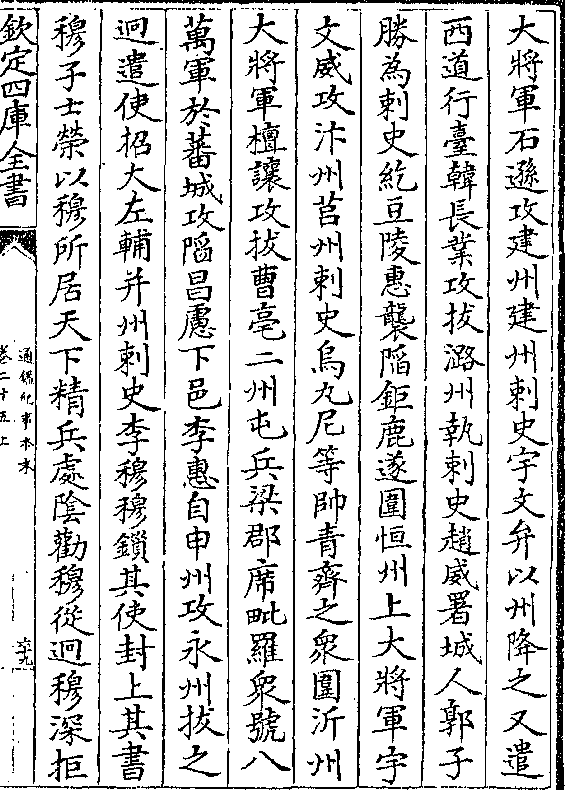 大將軍石遜攻建州建州刺史宇文弁以州降之又遣
西道行臺韓長業攻拔潞州執刺史趙威署城人郭子
勝為刺史紇豆陵惠襲陷鉅鹿遂圍恒州上大將軍宇
文威攻汴州莒州刺史烏丸尼等帥青齊之衆圍沂州
大將軍檀讓攻拔曹亳二州屯兵梁郡席毗羅衆號八
萬軍於蕃城攻陷昌慮下邑李惠自申州攻永州拔之
迥遣使招大左輔并州刺史李穆穆鎖其使封上其書
穆子士榮以穆所居天下精兵處陰勸穆從迥穆深拒
欽定四庫全書
通鑑紀事本末
卷二十五上
六九